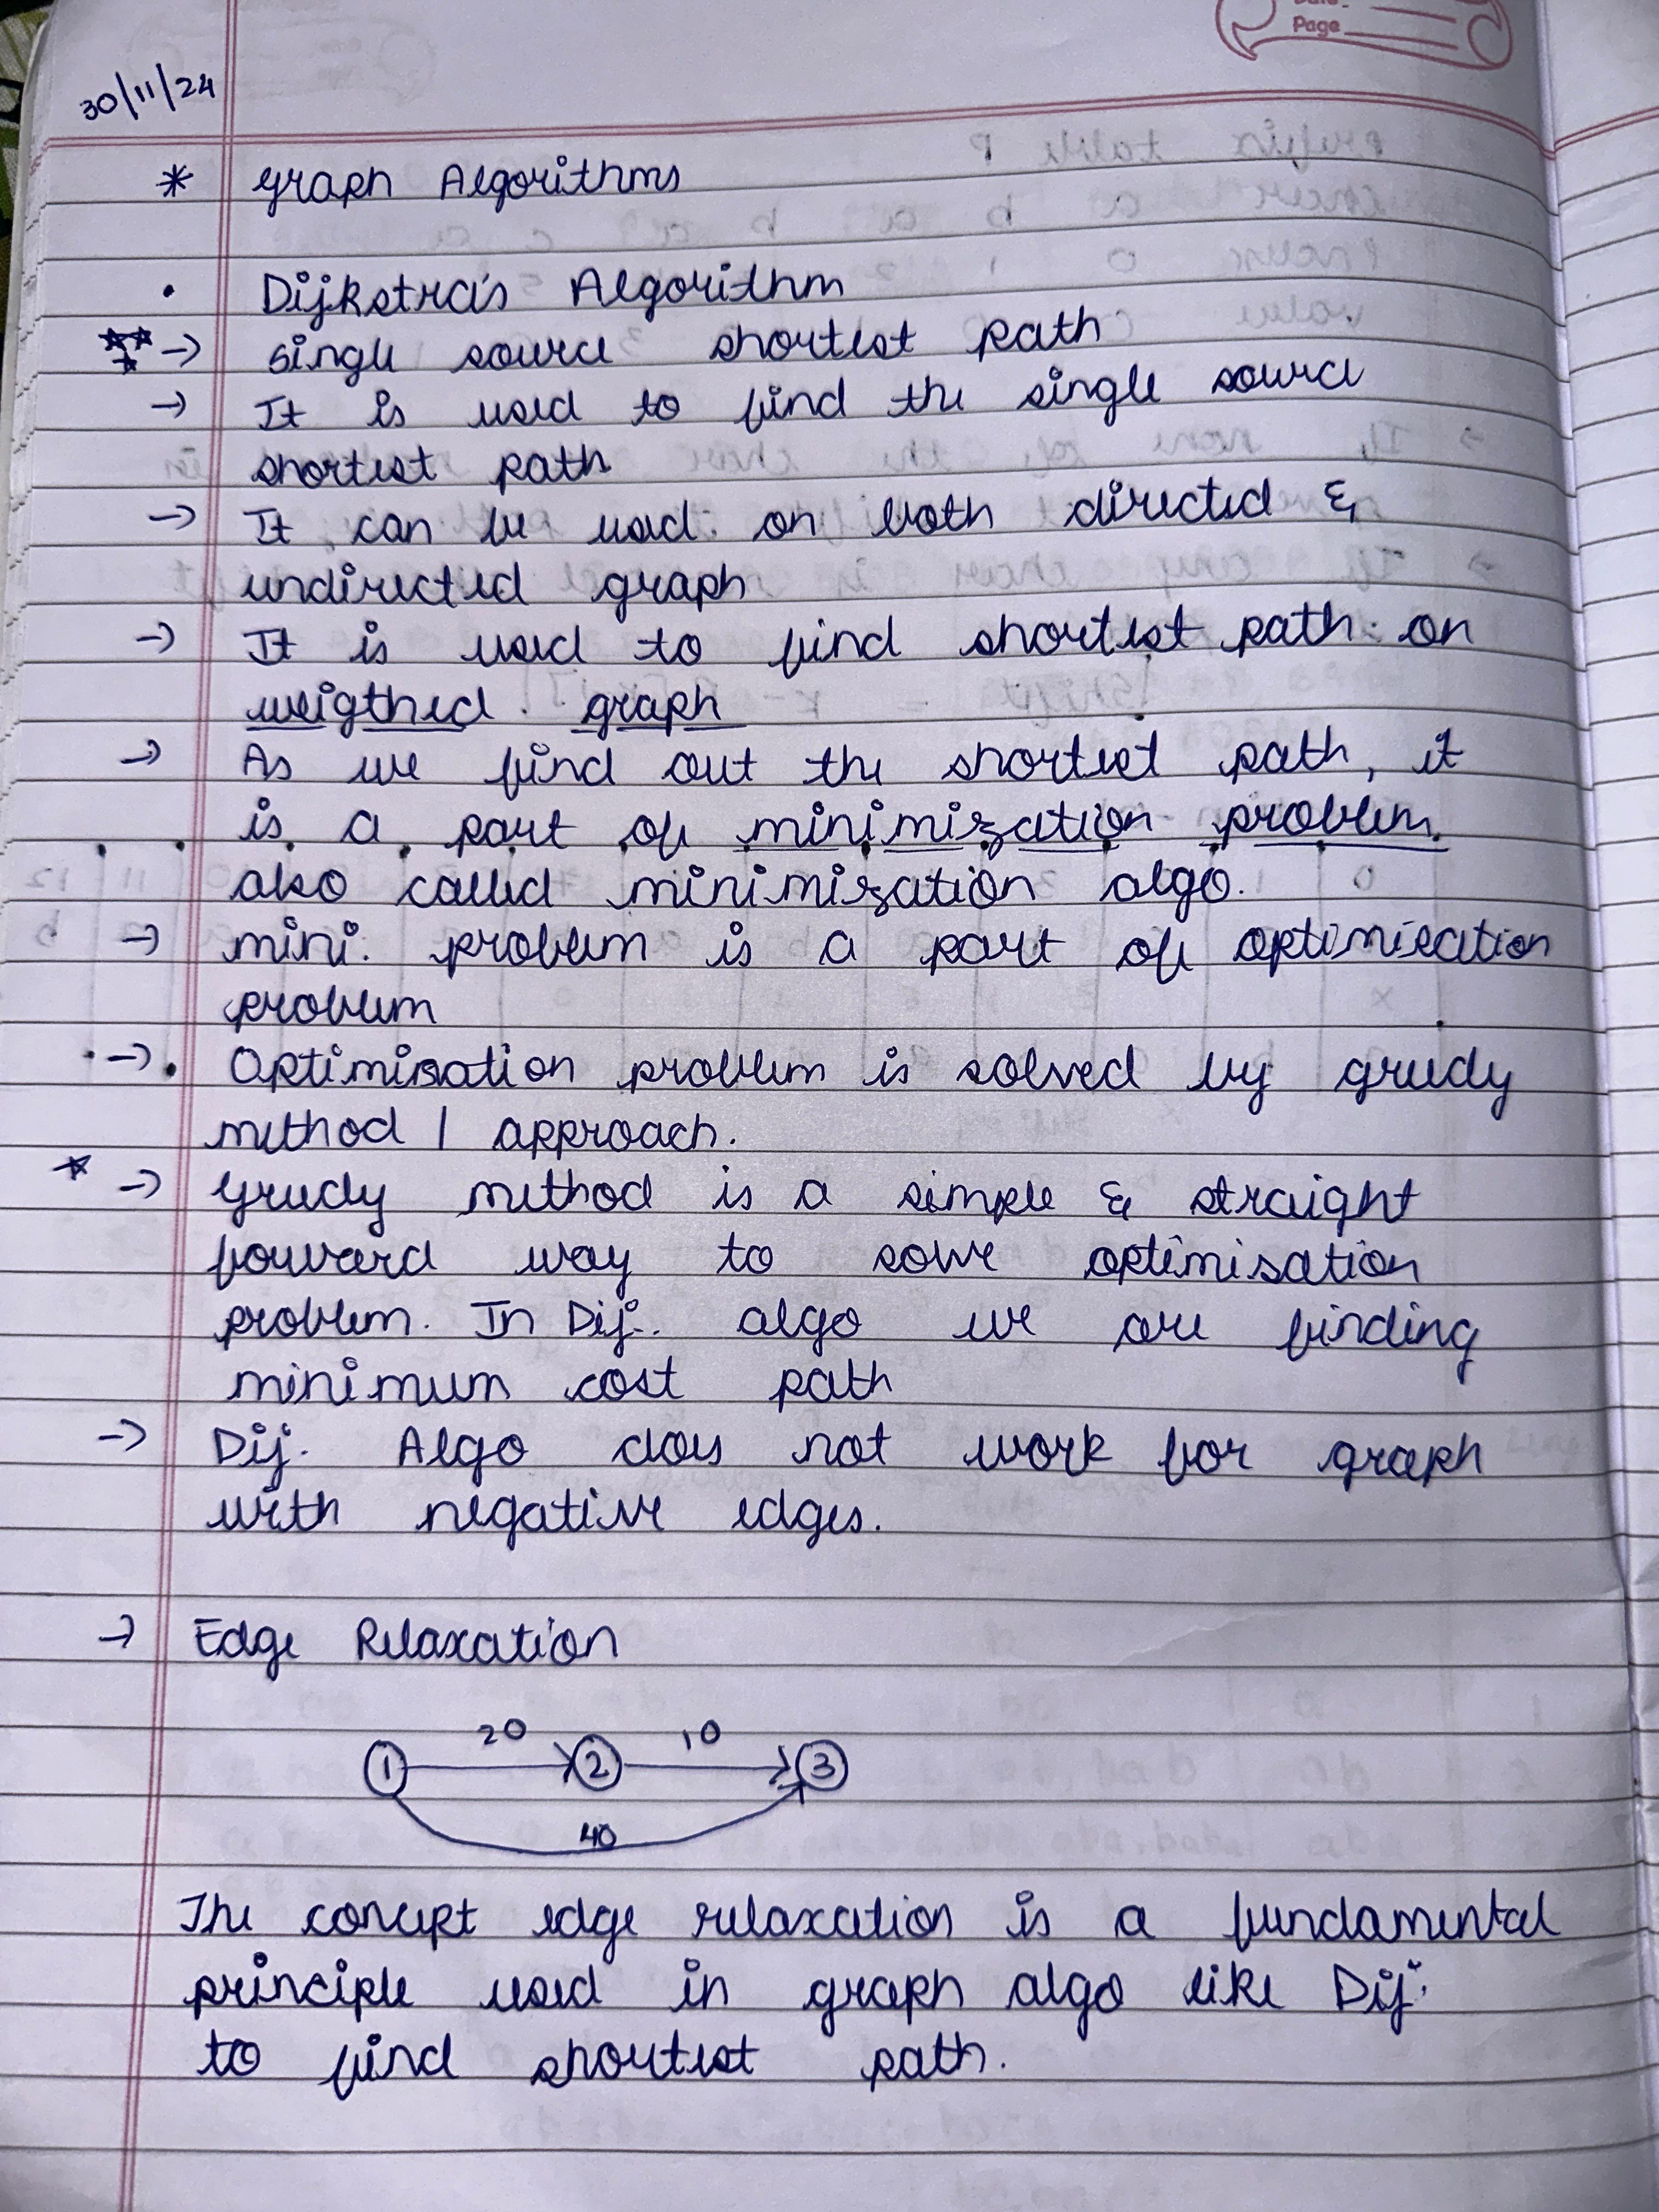 Date
Page
30/11/24
* Graph Algorithms
• Dijkstra's Algorithm
→ single source shortest path
→ It is used to find the single source
shortest path
→ It can be used on both directed &
undirected graph
→ It is used to find shortest path on
weigthed graph
→ As we find out the shortest path, it
is a part of minimization problem.
also called minimization algo.
→ mini. problem is a part of optimisation
problem
→ Optimisation problem is solved by greedy
method / approach.
* → Greedy method is a simple & straight
forward way to solve optimisation
problem. In Dij. algo we are finding
minimum cost path
→ Dij. Algo does not work for graph
with negative edges.
→ Edge Relaxation
20 10
1 2 3
40
The concept edge relaxation is a fundamental
principle used in graph algo like Dij.
to find shortest path.